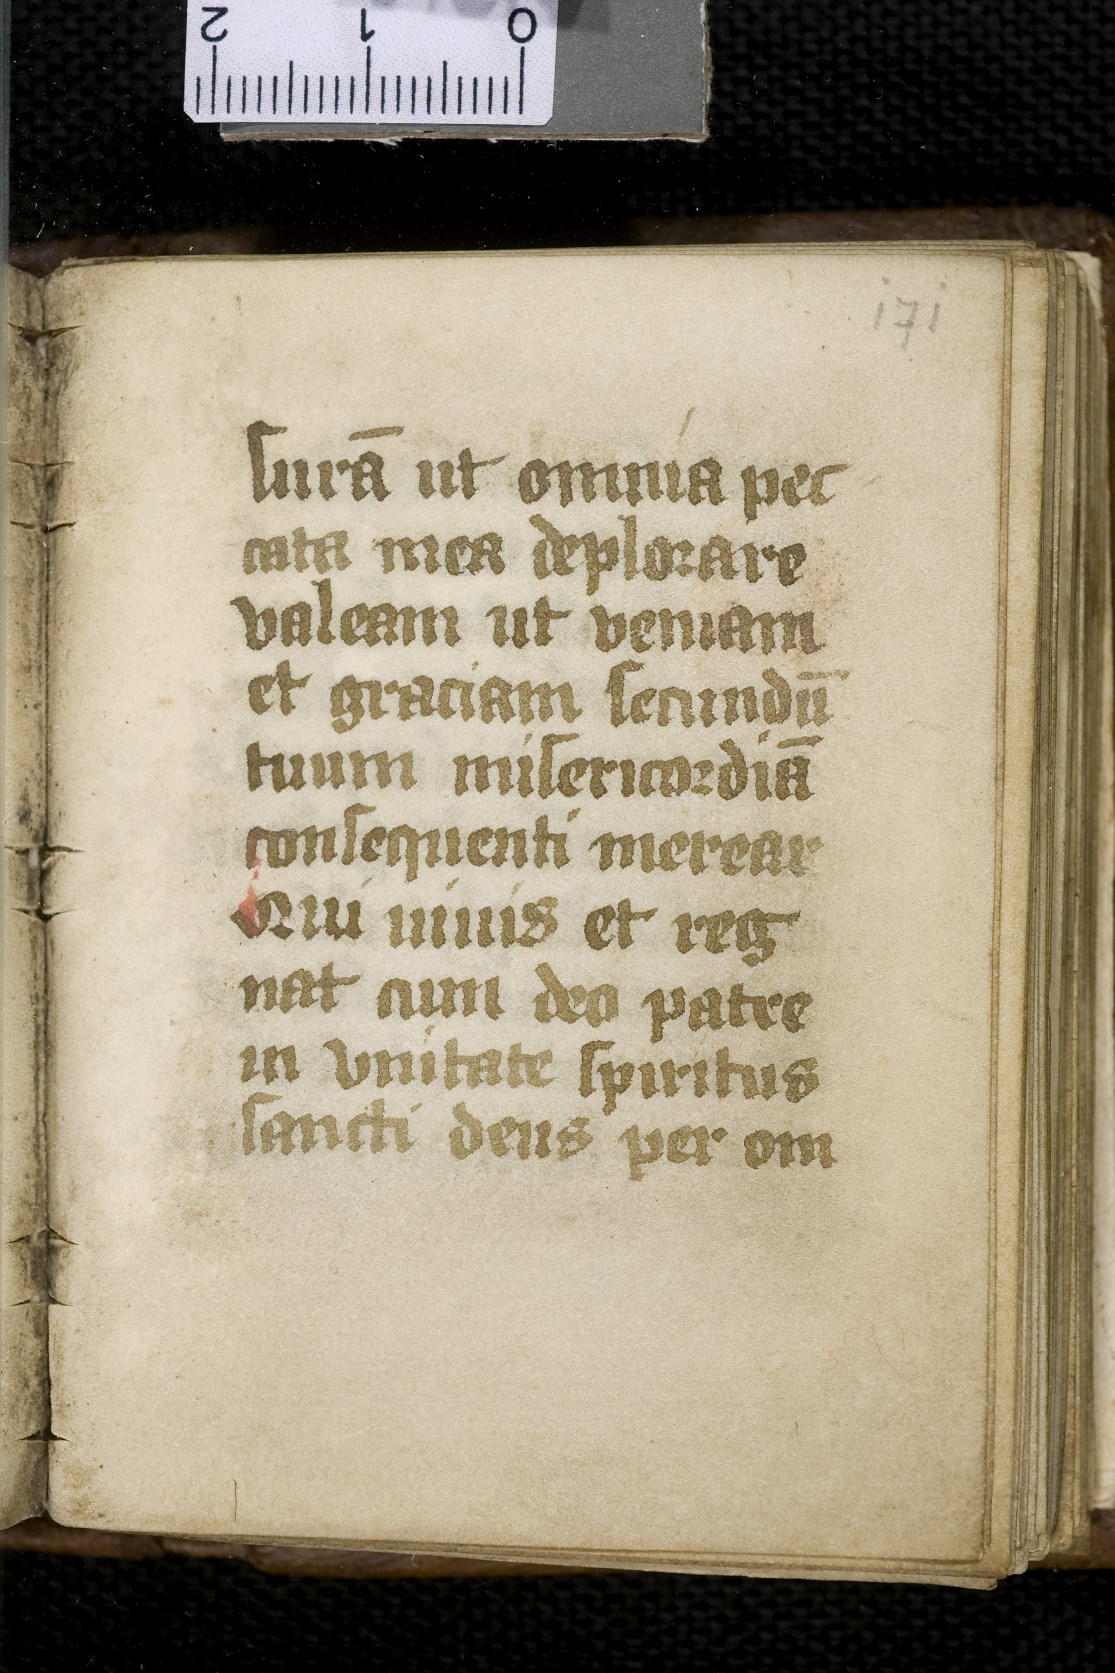 2 1 0
171
surā ut omnia pec
cata mea deplorare
valeam ut veniam
et graciam secundū
tuum misericordiā
consequenti merear
Qui uiuis et reg
nat cum deo patre
in vnitate spiritus
sancti deus per om